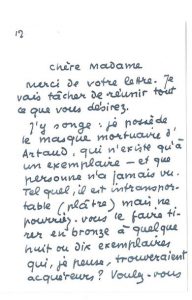 12
chère Madame
Merci de votre lettre. Je
vais tâcher de réunir tout
ce que vous désirez.
J'y songe : je possède
le masque mortuaire d'
Artaud, qui n'existe qu'à
un exemplaire – et que
personne n'a jamais vu.
Tel quel, il est intranspor-
table (plâtre) mais ne
pourriez-vous le faire ti-
rer en bronze à quelque
huit ou dix exemplaires
qui, je pense, trouveraient
acquéreurs? Voulez-vous